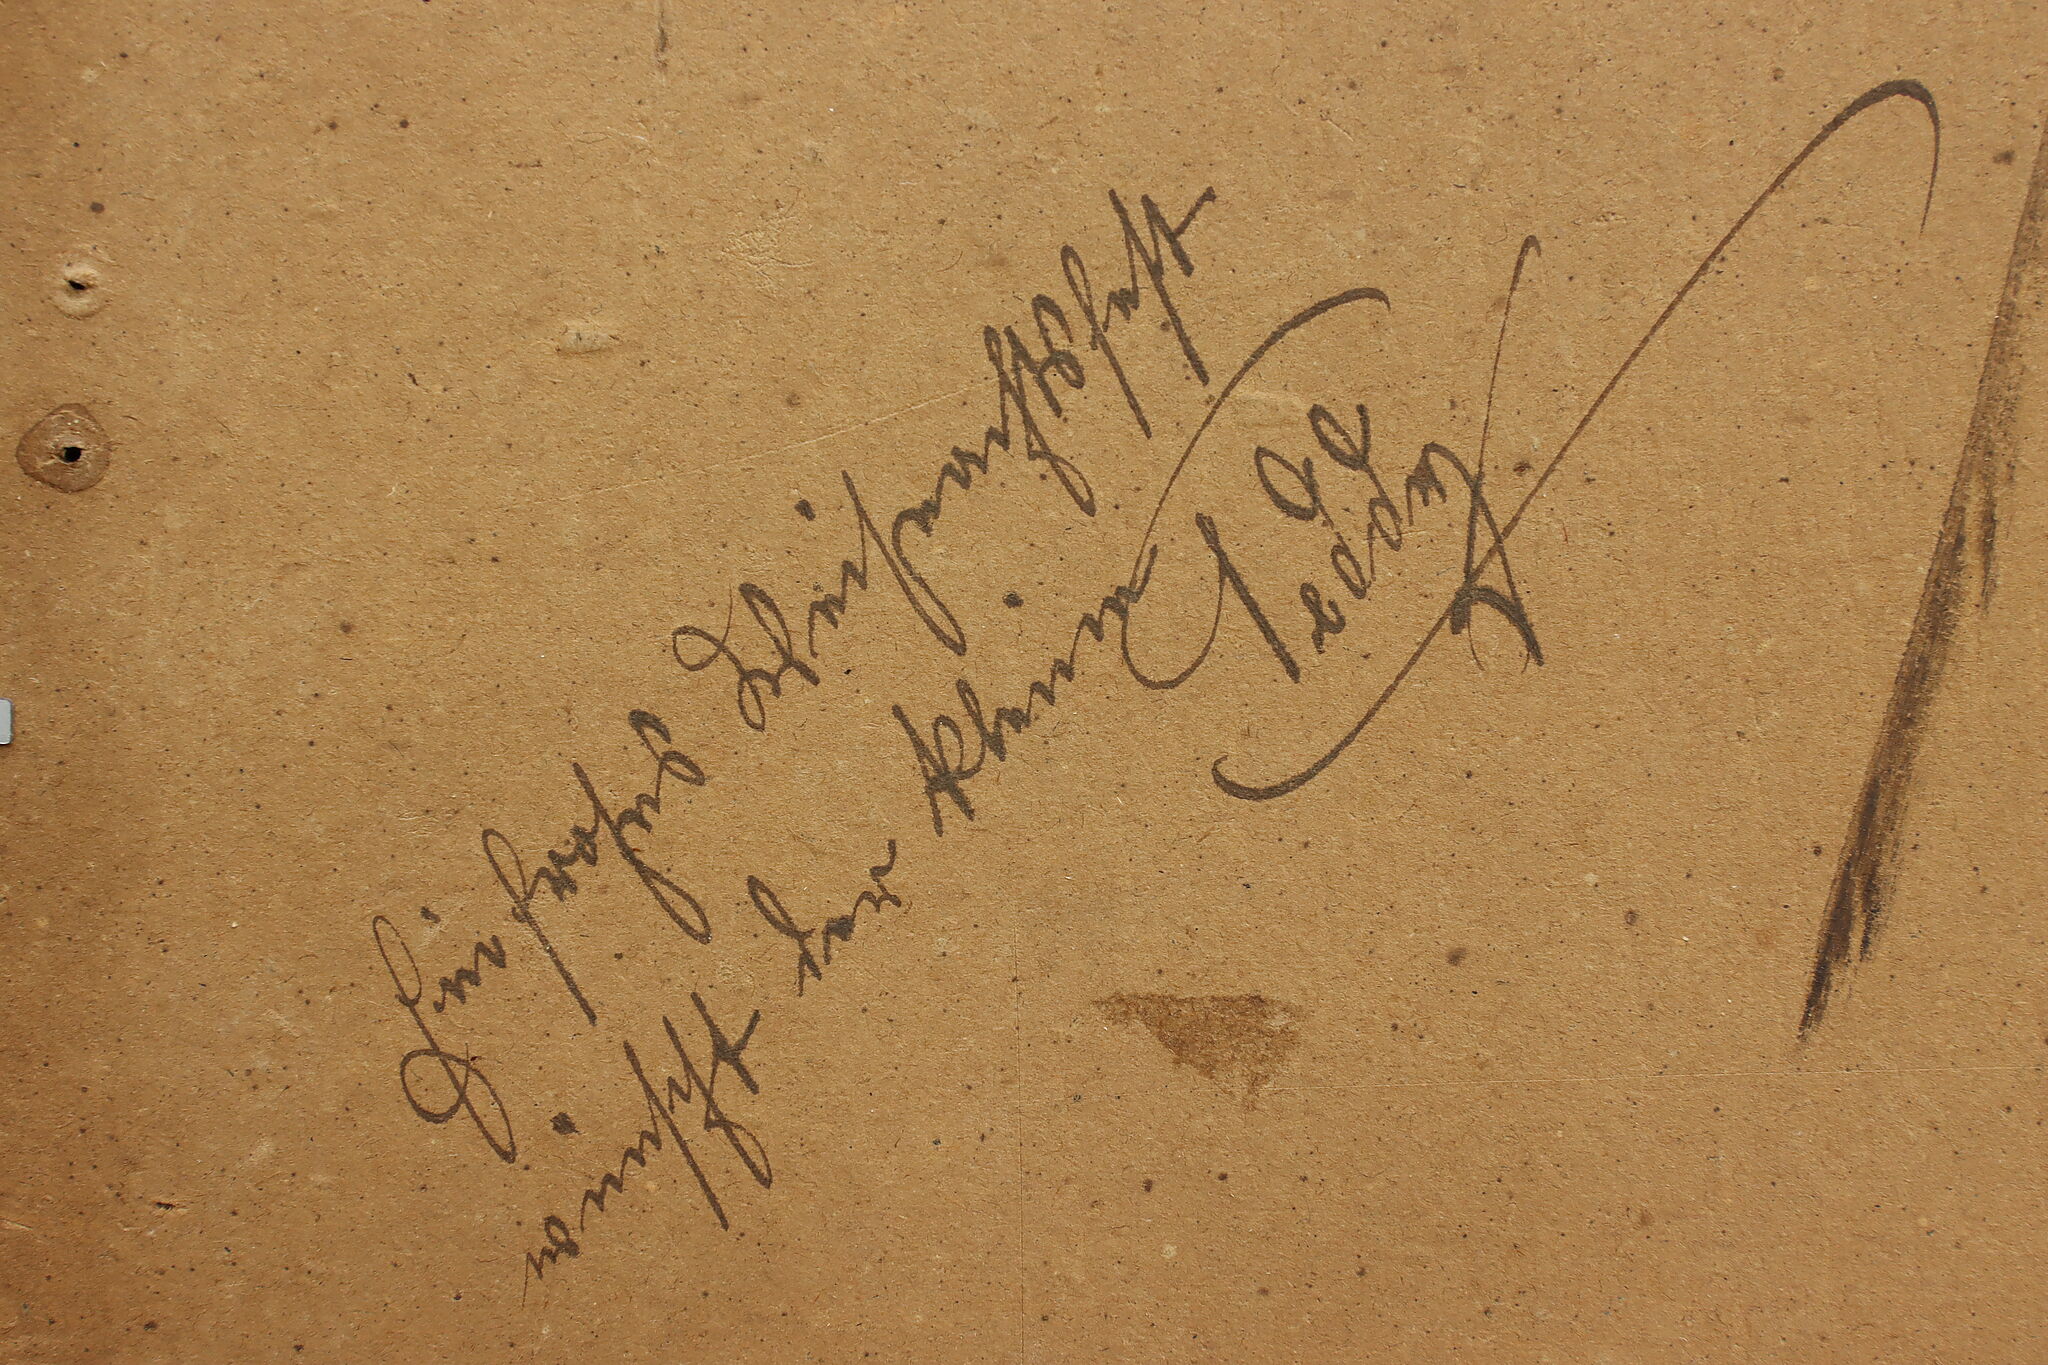 Ein frohes Weihnachtsfest
wünscht der kleine
Teddy